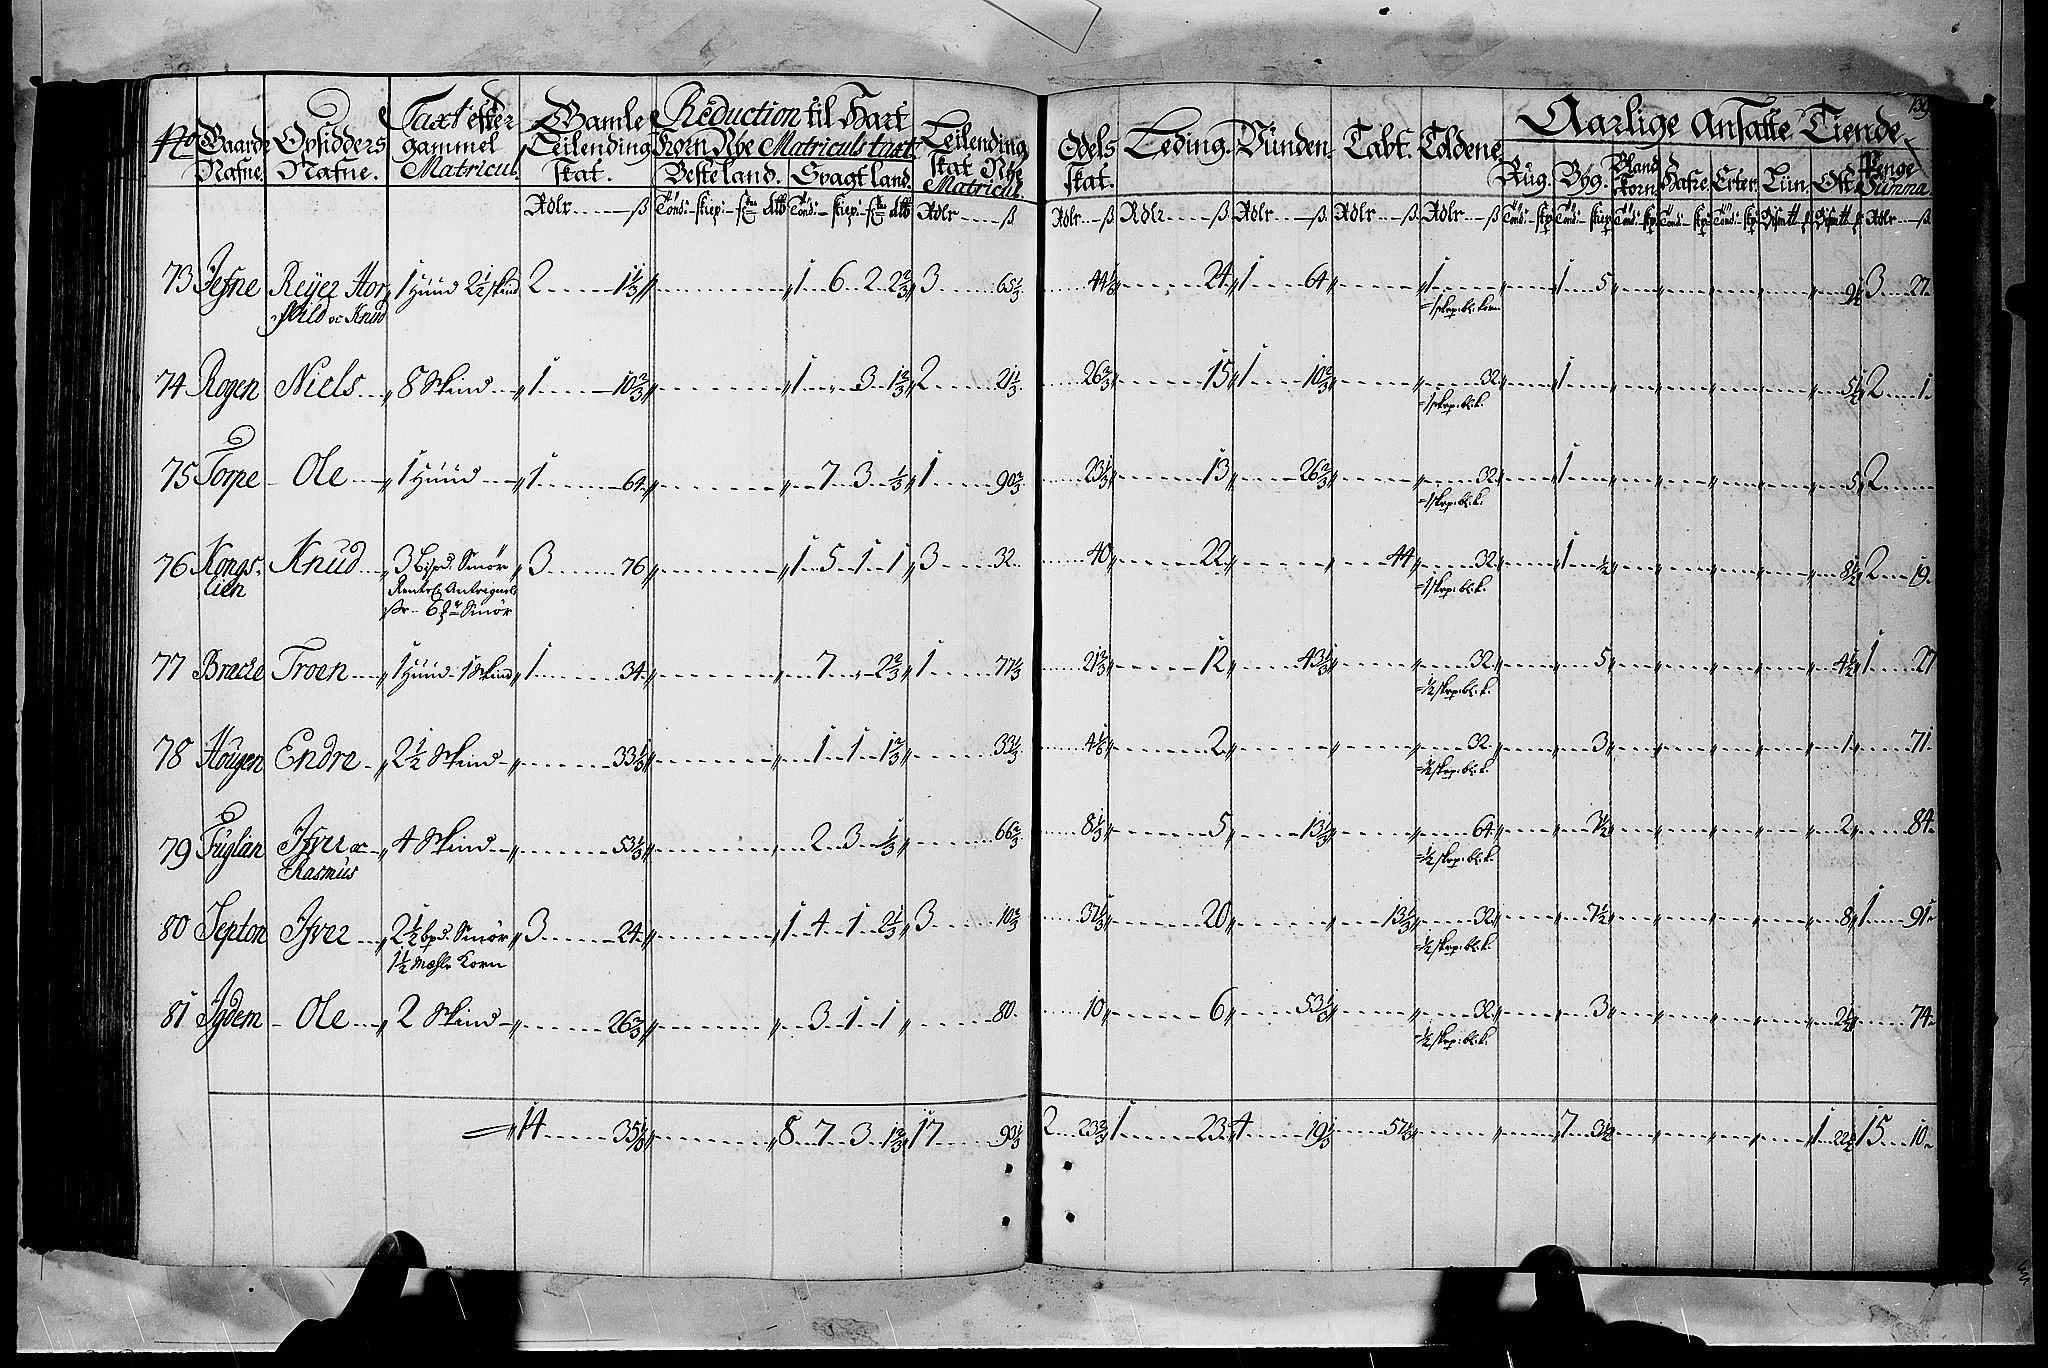 139
No Gaard Nafne. Opsidders Nafne. Taxt efter gammel Matricul. Gamle Leilending skat. Reduction til Hart Korn Nye Matriculs taxt Leilending skat Nye Matricul.
Besteland. Svagt land.
Rdlr ß Tönd: skiep: Tönd: skiep: Rdlr ß
Odels skat. Leding. Vünden. Tabt. Toldene Aarlige Ansatte Tiende
Rüg. Byg. Bland korn. Hafre. Erter. Liin. Ost. Penge Summa.
Rdlr ß Rdlr ß Rdlr ß Rdlr ß Rdlr ß
73 Refer Hor, 1 Hüüd 2½ skind 2 1⅓ 1 6 2 2⅔ 3 65⅓ 44⅙ 24 1 64 1 1 5 9½ 3 27
skild oc Knüd =1 skp: bl: korn
74 Rogen Niels 8 Skind 1 10⅔ 1 3 1⅔ 2 21⅓ 26⅔ 15 1 10⅔ 32 1 5½ 2 1
=1 skp: bl: k.
75 Torpe Ole 1 Hüüd 1 64 7 3 ⅓ 1 90⅔ 23⅓ 13 26⅔ 32 1 5 2
=1 skp: bl: k.
76 Kongs- Knüd 3 bspd. Smör 3 76 1 5 1 1 3 32 40 22 44 32 1 ½ 8½ 2 19
lien 6 Smör =1 skp: bl: k.
77 Bracke Troen 1 Hüüd 1 Skind 1 34 7 2⅔ 1 77⅓ 21⅔ 12 43⅓ 32 5 4½ 1 27
=½ skp: bl: k.
78 Höugen Endre 2½ Skind 33⅓ 1 1 1⅔ 33⅓ 4⅙ 2 32 3 1 71
=½ skp: bl: k.
79 Füglan Ifver oc 4 Skind 53⅓ 2 3 ⅓ 66⅔ 8⅓ 5 13⅓ 64 3½ 2 84
Rasmüs =½ skp: bl: k.
80 Septon Ifver 2½ bpd. Smör 3 24 1 4 1 2⅓ 3 10⅔ 37⅓ 20 13⅓ 32 7½ 8 1 91
1½ Mæhle Korn =½ skp: bl: k.
81 Igdem Ole 2 Skind 26⅔ 3 1 1 80 10 6 53⅓ 32 3 2½ 74
=½ skp: bl: k.
14 35⅙ 8 7 3 1⅔ 17 93⅓ 2 23⅔ 1 23 4 19⅓ 57⅓ 7 3½ 1 22½ 15 10